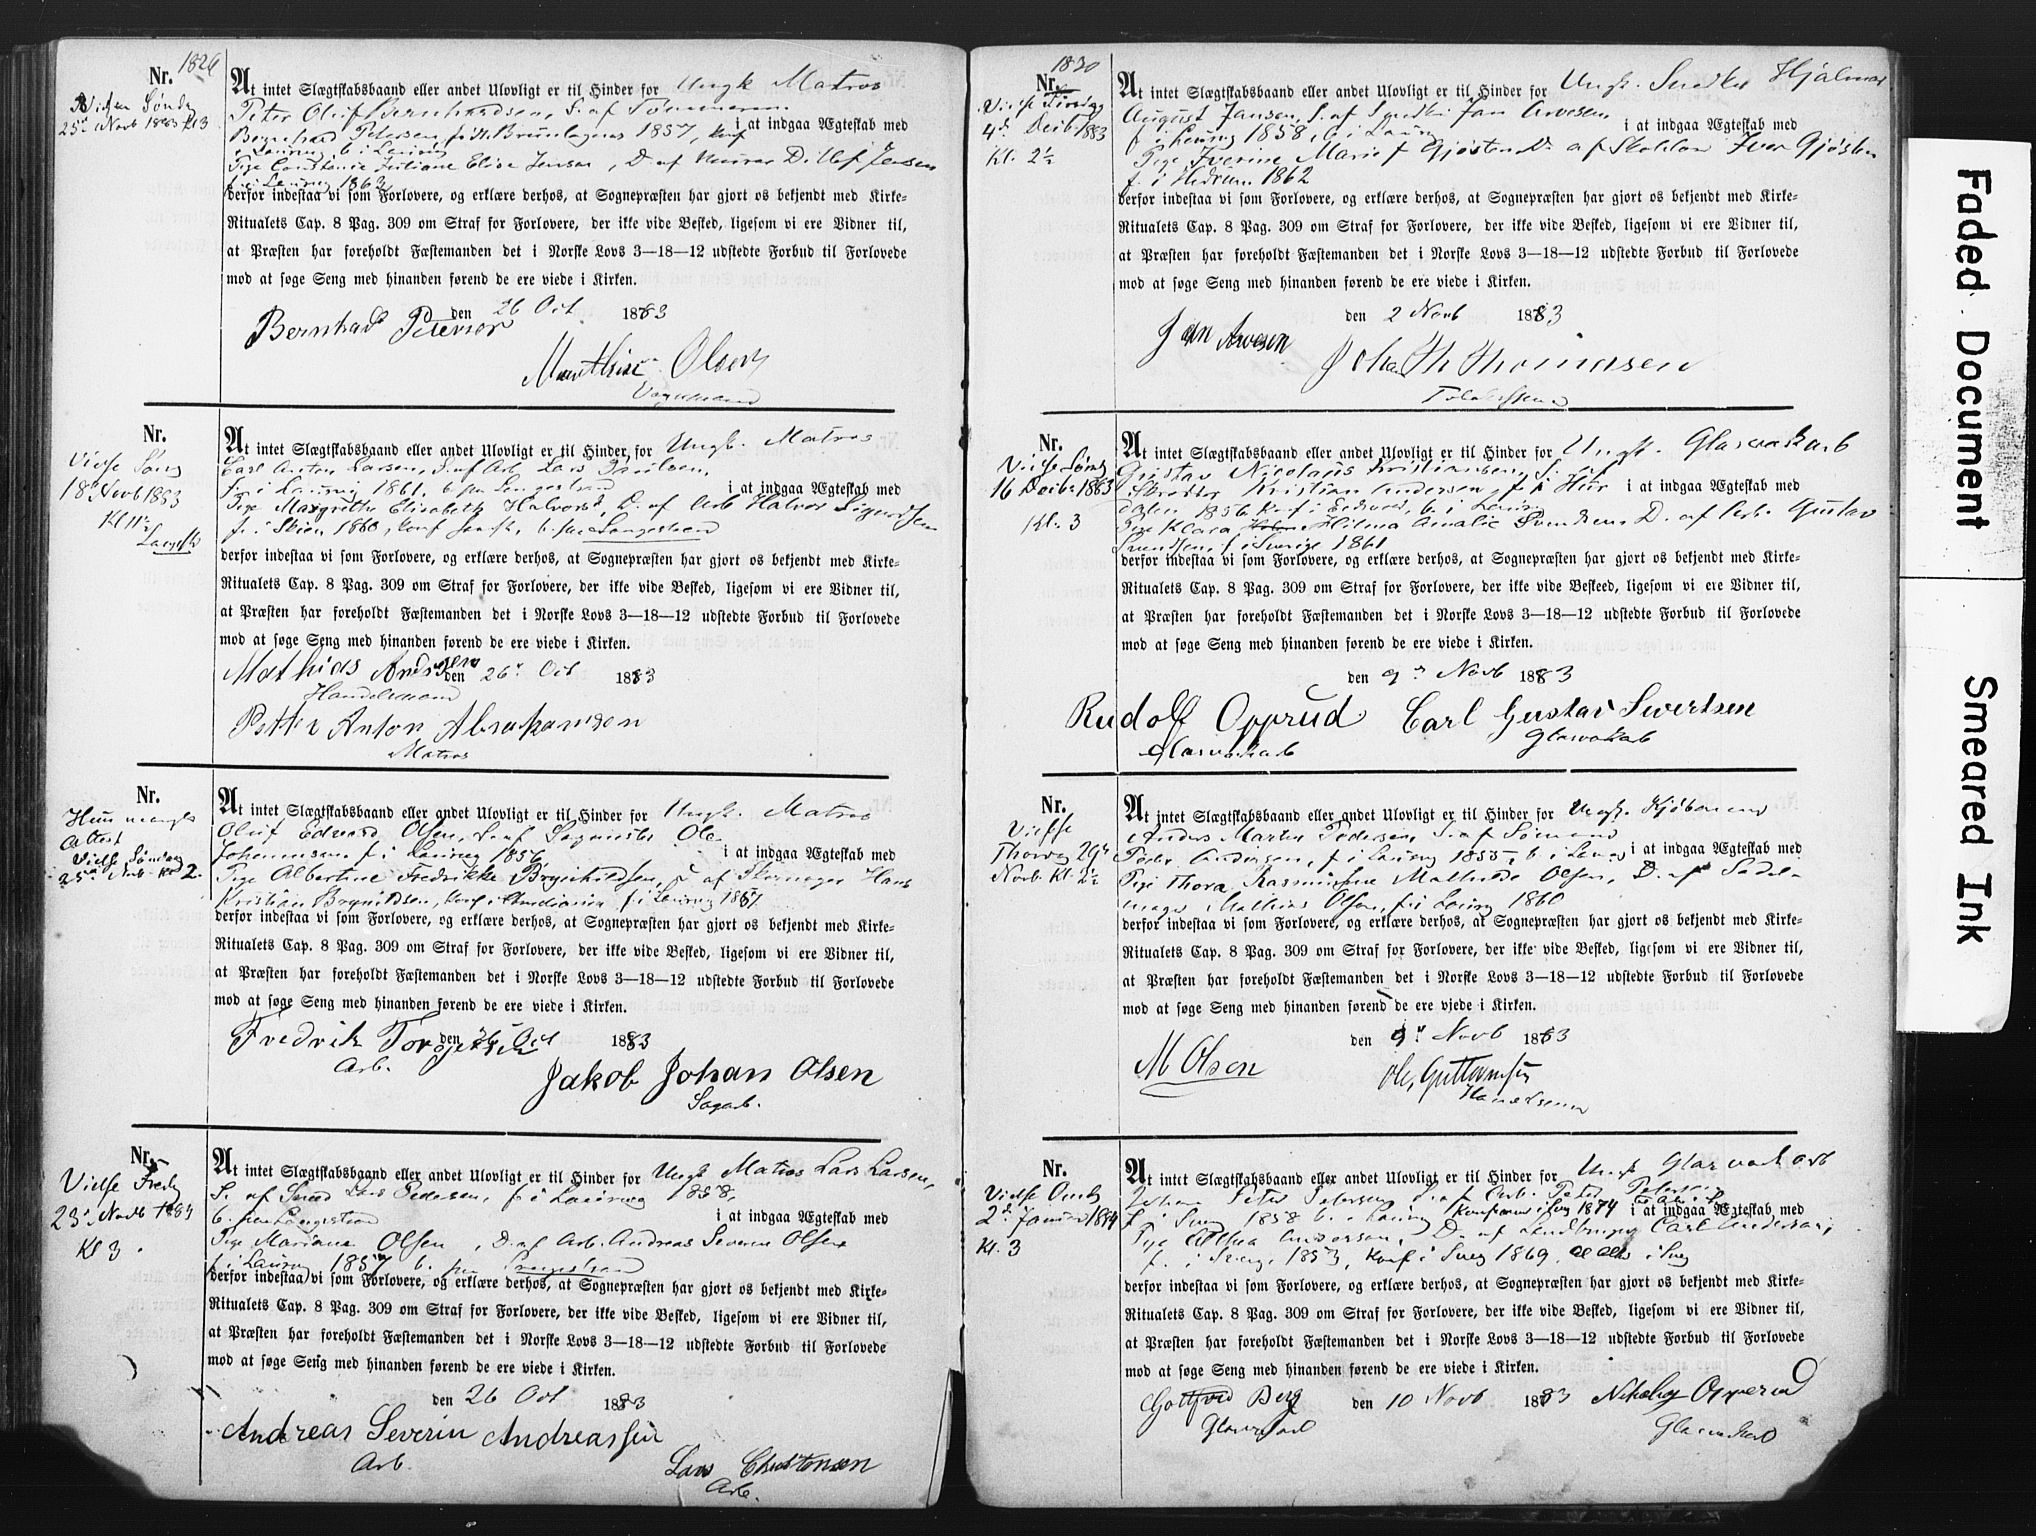 Nr. 1826
Vielse Søndag
25de Novb 1883 Kl 3
At intet Slægtskabsbaand eller andet Ulovligt er til Hinder for Ungk. Matros
Peter Oluf Bernhardsen, S. af Tømmerm.
Bernhard Petersen, f. i Brunlagnæs 1857, konf. i at indgaa Ægteskab med
i Laurvig b. i Laurvig
Pige Constance Juliane Elise Jensen, D. af Murer Ditlef Jensen
f. i Laurvig 1863
derfor indestaa vi som Forlovere, og erklære derhos, at Sognepræsten har gjort os bekjendt med Kirke-
Ritualets Cap. 8 Pag. 309 om Straf for Forlovere, der ikke vide Besked, ligesom vi ere Vidner til,
at Præsten har foreholdt Fæstemanden det i Norske Lovs 3—18—12 udstedte Forbud til Forlovede
mod at søge Seng med hinanden førend de ere viede i Kirken.
den 26 Oct 1883
Bernhard Petersen
Mathias Olsen
Vognmand
Nr.
Vielse Søndag
18de Novb 1883
Kl 11
Langestr
At intet Slægtskabsbaand eller andet Ulovligt er til Hinder for Ungk. Matros
Carl Anton Larsen, S. af Arb. Lars Paulsen,
f. i Laurvig 1861, b. paa Langestrand i at indgaa Ægteskab med
Pige Margrethe Elisabeth Halvorsd, D. af Arb Halvor Sigurdsen
f. i Skien 1860, konf sammest, b. paa Langestrand
derfor indestaa vi som Forlovere, og erklære derhos, at Sognepræsten har gjort os bekjendt med Kirke-
Ritualets Cap. 8 Pag. 309 om Straf for Forlovere, der ikke vide Besked, ligesom vi ere Vidner til,
at Præsten har foreholdt Fæstemanden det i Norske Lovs 3—18—12 udstedte Forbud til Forlovede
mod at søge Seng med hinanden førend de ere viede i Kirken.
den 26 Oct 1883
Mathias Andersen
Handelsmand
Petter Anton Abrahamsen
Matros
Nr.
Hun mangler
Attest
Vielse Søndag
25de Novb. Kl 2.
At intet Slægtskabsbaand eller andet Ulovligt er til Hinder for Ungk. Matros
Oluf Edvard Olsen, S. af Ole
Johannesen f. i Laurvig 1856 i at indgaa Ægteskab med
Pige Albertine Fredrikke Brynildsen, D. af Skomager Hans
Kristian Brynildsen, konf. i Christiania f. i Laurvig 1857
derfor indestaa vi som Forlovere, og erklære derhos, at Sognepræsten har gjort os bekjendt med Kirke-
Ritualets Cap. 8 Pag. 309 om Straf for Forlovere, der ikke vide Besked, ligesom vi ere Vidner til,
at Præsten har foreholdt Fæstemanden det i Norske Lovs 3—18—12 udstedte Forbud til Forlovede
mod at søge Seng med hinanden førend de ere viede i Kirken.
den 26 Oct 1883
Fredrik Torgersen
Arb.
Jakob Johan Olsen
Sagarb.
Nr.
Vielse Fredag
23de Novb 1883
Kl 3
At intet Slægtskabsbaand eller andet Ulovligt er til Hinder for Ungk Matros Lars Larsen,
S. af Smed Lars Pedersen, f. i Laurvig 1858,
b. paa Langestrand i at indgaa Ægteskab med
Pige Mariane Olsen, D. af Arb. Andreas Severin Olsen
f. i Laurvig 1857 b. paa Langestrand
derfor indestaa vi som Forlovere, og erklære derhos, at Sognepræsten har gjort os bekjendt med Kirke-
Ritualets Cap. 8 Pag. 309 om Straf for Forlovere, der ikke vide Besked, ligesom vi ere Vidner til,
at Præsten har foreholdt Fæstemanden det i Norske Lovs 3—18—12 udstedte Forbud til Forlovede
mod at søge Seng med hinanden førend de ere viede i Kirken.
den 26 Oct 1883
Andreas Severin Andreassen
Arb.
Lars Christensen
Arb.
Nr. 1830
Vielse Tirsdag
4de Decbr 1883
Kl. 2½
At intet Slægtskabsbaand eller andet Ulovligt er til Hinder for Ungk. Snedker Hjalmar
August Jansen, S. af Snedker Jan Arvesen
f. i Laurvig 1858, b. i Laurvig i at indgaa Ægteskab med
Pige Iverine Marie Gjøsten D. af Iver Gjøsten
f. i Hedrum 1862
derfor indestaa vi som Forlovere, og erklære derhos, at Sognepræsten har gjort os bekjendt med Kirke-
Ritualets Cap. 8 Pag. 309 om Straf for Forlovere, der ikke vide Besked, ligesom vi ere Vidner til,
at Præsten har foreholdt Fæstemanden det i Norske Lovs 3—18—12 udstedte Forbud til Forlovede
mod at søge Seng med hinanden førend de ere viede i Kirken.
den 2 Novb 1883
Jan Arvesen
Johan Th Thomasen
Nr.
Vielse Søndag
16 Decbr 1883
Kl. 3
At intet Slægtskabsbaand eller andet Ulovligt er til Hinder for Ungk. Glasværkarb
Gustav Nicolaus Kristiansen, S. af
Skrædder Kristian Andersen, f. i Hur i at indgaa Ægteskab med
dalen 1856 konf i Eidsvold, b. i Laurvig
Pige Klara Hilma Amalie Svendsen D. af Arb. Gustav
Svendsen, f. i Sverige 1861
derfor indestaa vi som Forlovere, og erklære derhos, at Sognepræsten har gjort os bekjendt med Kirke-
Ritualets Cap. 8 Pag. 309 om Straf for Forlovere, der ikke vide Besked, ligesom vi ere Vidner til,
at Præsten har foreholdt Fæstemanden det i Norske Lovs 3—18—12 udstedte Forbud til Forlovede
mod at søge Seng med hinanden førend de ere viede i Kirken.
den 9de Novb 1883
Rudolf Opprud Carl Gustav Swertsen
Glasværkarb Glasværkarb
Nr.
Vielse
Thorsdag 29de
Novb. Kl. 2½
At intet Slægtskabsbaand eller andet Ulovligt er til Hinder for Ungk. Kjøbmand
Anders Martin Pedersen S. af Sømand
Peder Andersen, f. i Laurvig 1855, b. i Laurvig i at indgaa Ægteskab med
Pige Thora Rasmussine Mathilde Olsen, D. af Sadel-
mager Mathias Olsen, f. i Laurvig 1860
derfor indestaa vi som Forlovere, og erklære derhos, at Sognepræsten har gjort os bekjendt med Kirke-
Ritualets Cap. 8 Pag. 309 om Straf for Forlovere, der ikke vide Besked, ligesom vi ere Vidner til,
at Præsten har foreholdt Fæstemanden det i Norske Lovs 3—18—12 udstedte Forbud til Forlovede
mod at søge Seng med hinanden førend de ere viede i Kirken.
den 9de Novb 1883
M Olsen
Ole Guttormsen
Handelsmand
Nr.
Vielse Onsdag
2de Januar 1884
Kl. 3
At intet Slægtskabsbaand eller andet Ulovligt er til Hinder for Ungk Glasværkarb
Johan Peter Petersen S. af Arb. Peter Petersen
f. i Sverig 1858 b. i Laurvig konfirmeret i Sverig 1874 i at indgaa Ægteskab med
Pige Althea Andersson, D. af Landbruger Carl Andersson,
f. i Sverige 1853, konf i Sverig 1869,
derfor indestaa vi som Forlovere, og erklære derhos, at Sognepræsten har gjort os bekjendt med Kirke-
Ritualets Cap. 8 Pag. 309 om Straf for Forlovere, der ikke vide Besked, ligesom vi ere Vidner til,
at Præsten har foreholdt Fæstemanden det i Norske Lovs 3—18—12 udstedte Forbud til Forlovede
mod at søge Seng med hinanden førend de ere viede i Kirken.
Gottfred Berg den 10 Novb 1883 Nikolay Opperud
Glasværkarb Glasværkarb
Faded Document
Smeared Ink